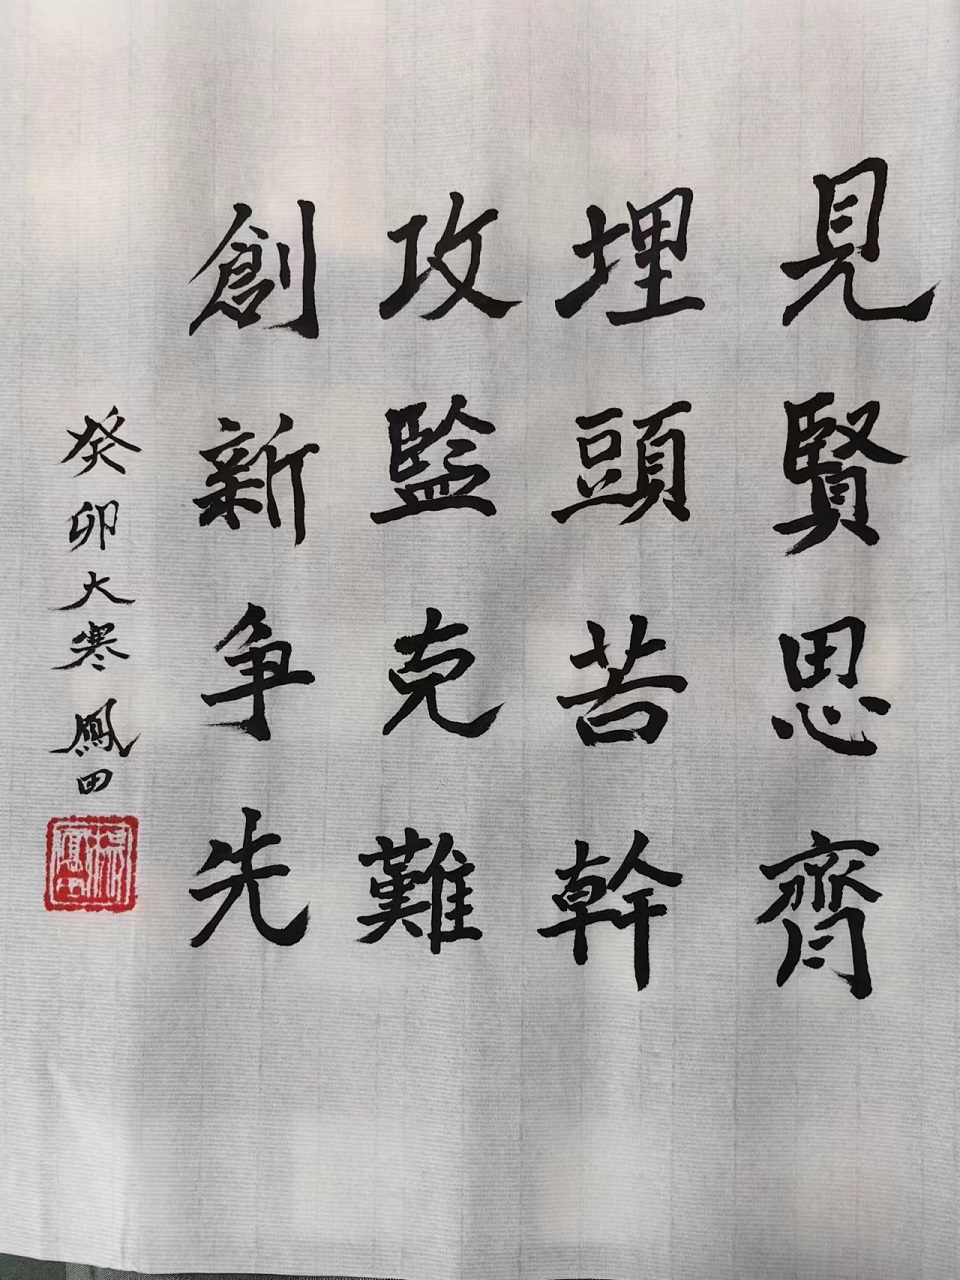 見賢思齊
埋頭苦幹
攻監克難
創新争先
癸卯大寒 鳳田